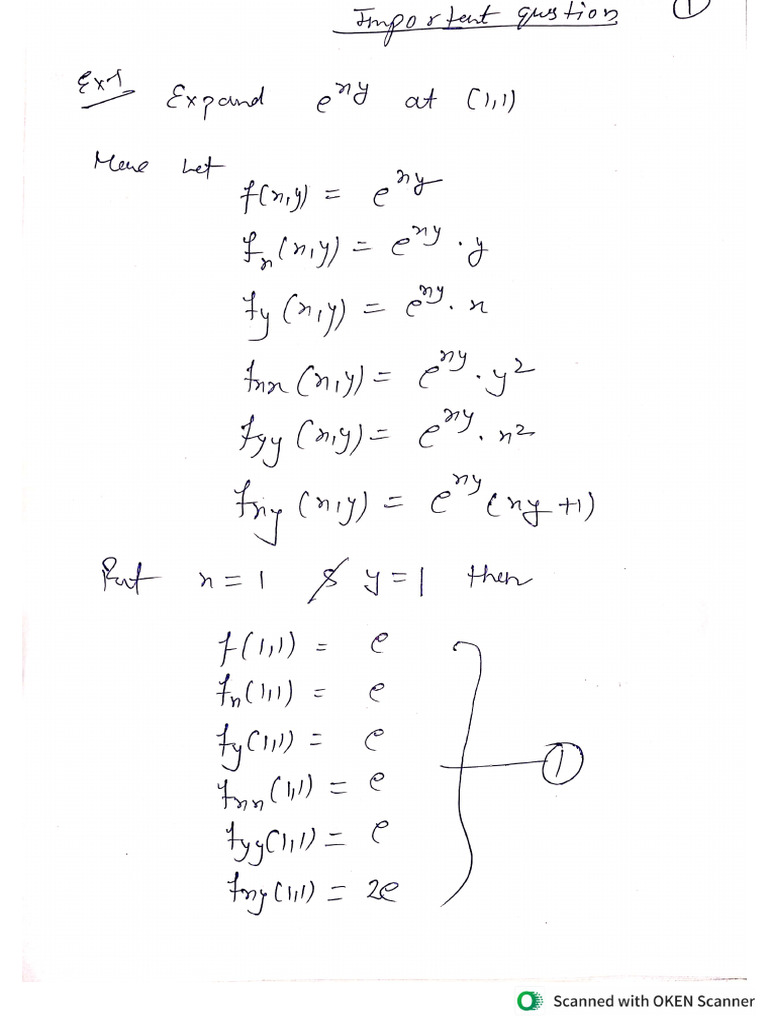 Important qustion ①
Ex1 Expand e^{xy} at (1,1)
Here Let
f(x,y) = e^{xy}
f_x(x,y) = e^{xy} · y
f_y(x,y) = e^{xy} · x
f_{xx}(x,y) = e^{xy} · y²
f_{yy}(x,y) = e^{xy} · x²
f_{xy}(x,y) = e^{xy}(xy+1)
Put x=1 & y=1 then
f(1,1) = e
f_x(1,1) = e
f_y(1,1) = e
①
f_{xx}(1,1) = e
f_{yy}(1,1) = e
f_{xy}(1,1) = 2e
Scanned with OKEN Scanner